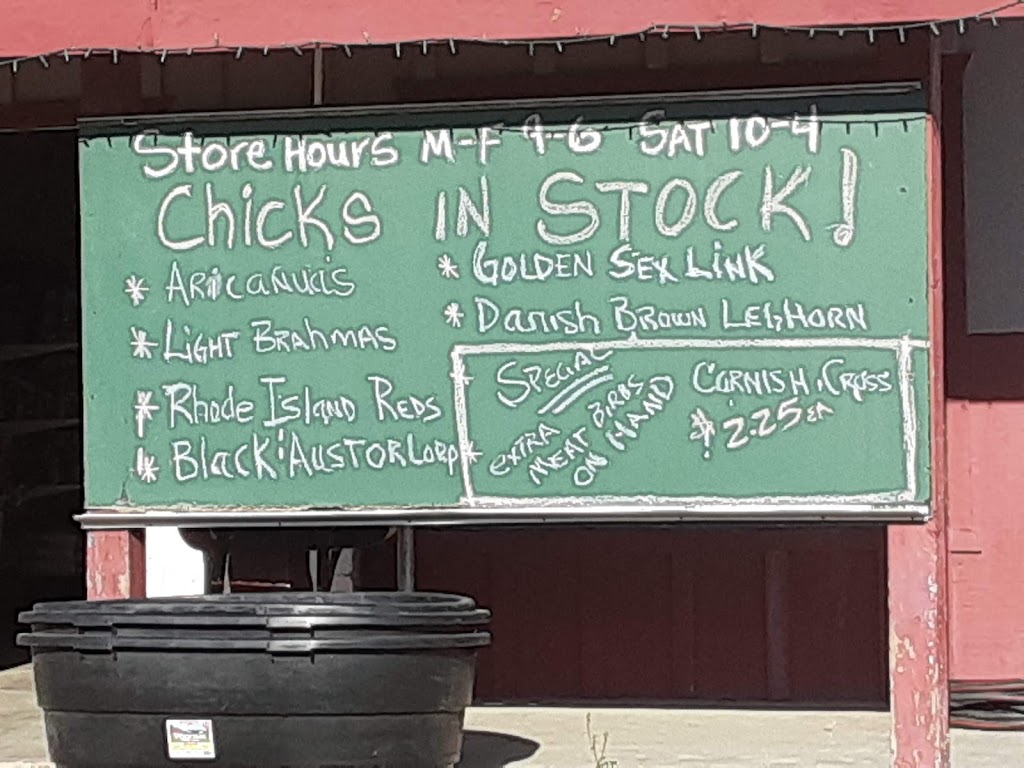 Store Hours M-F 9-6 SAT 10-4
Chicks IN STOCK!
* ARicanuais
* Light Brahmas
* Rhode Island Reds
* Black Austorlorp
* Golden Sex Link
* Danish Brown Leghorn
Special
extra
meat birds
on hand
Cornish Cross
$2.25 EA